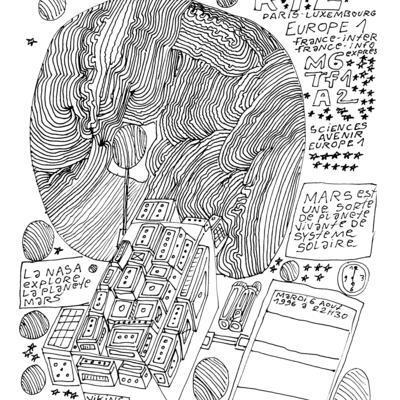 RTL
PARIS-LUXEMBOURG
EUROPE 1
france-inter
france-info
express
M6
TF1
A2
SCIENCES
AVENIR
EUROPE 1
MARS est
UNE SORTE
DE PLANÈTE
VIVANTE DE
SYSTÈME
SOLAIRE
LA NASA
explore
LA PLANÈTE
MARS
MARDI 6 AOUT
1996 à 22H30
VIKING